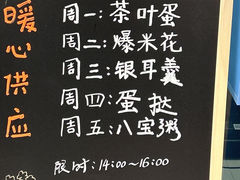 暖心供应
周一:茶叶蛋
周二:爆米花
周三:银耳羹
周四:蛋挞
周五:八宝粥
限时:14:00~16:00